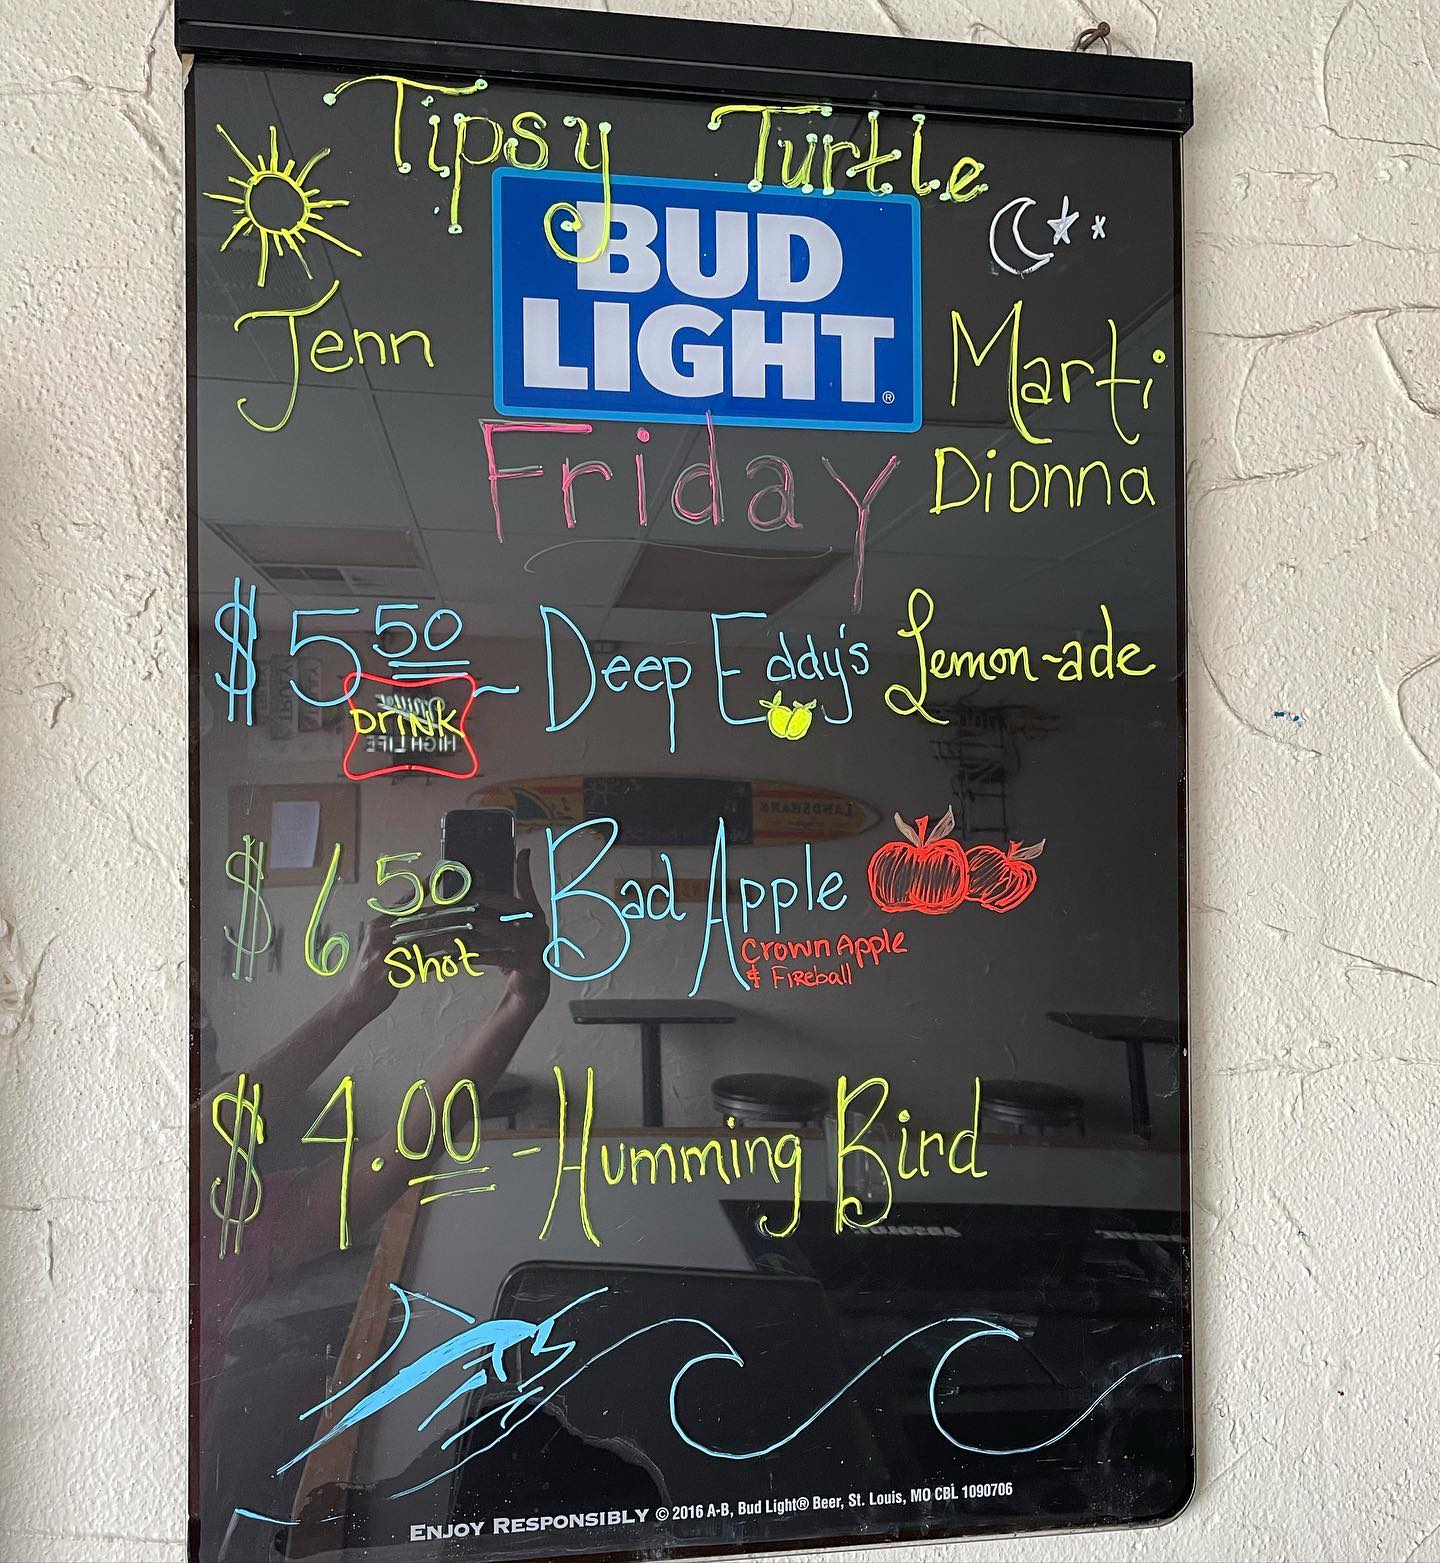 Tipsy Turtle
BUD
LIGHT®
Jenn
Marti
Dionna
Friday
$5 50 - Deep Eddy's Lemon-ade
DRINK
HIGH LIFE
LANDSHARK
$6 50 - Bad Apple
Shot
Crown Apple
& Fireball
$4.00 - Humming Bird
ABSOLUT
ENJOY RESPONSIBLY © 2016 A-B, Bud Light® Beer, St. Louis, MO CBL 1090706